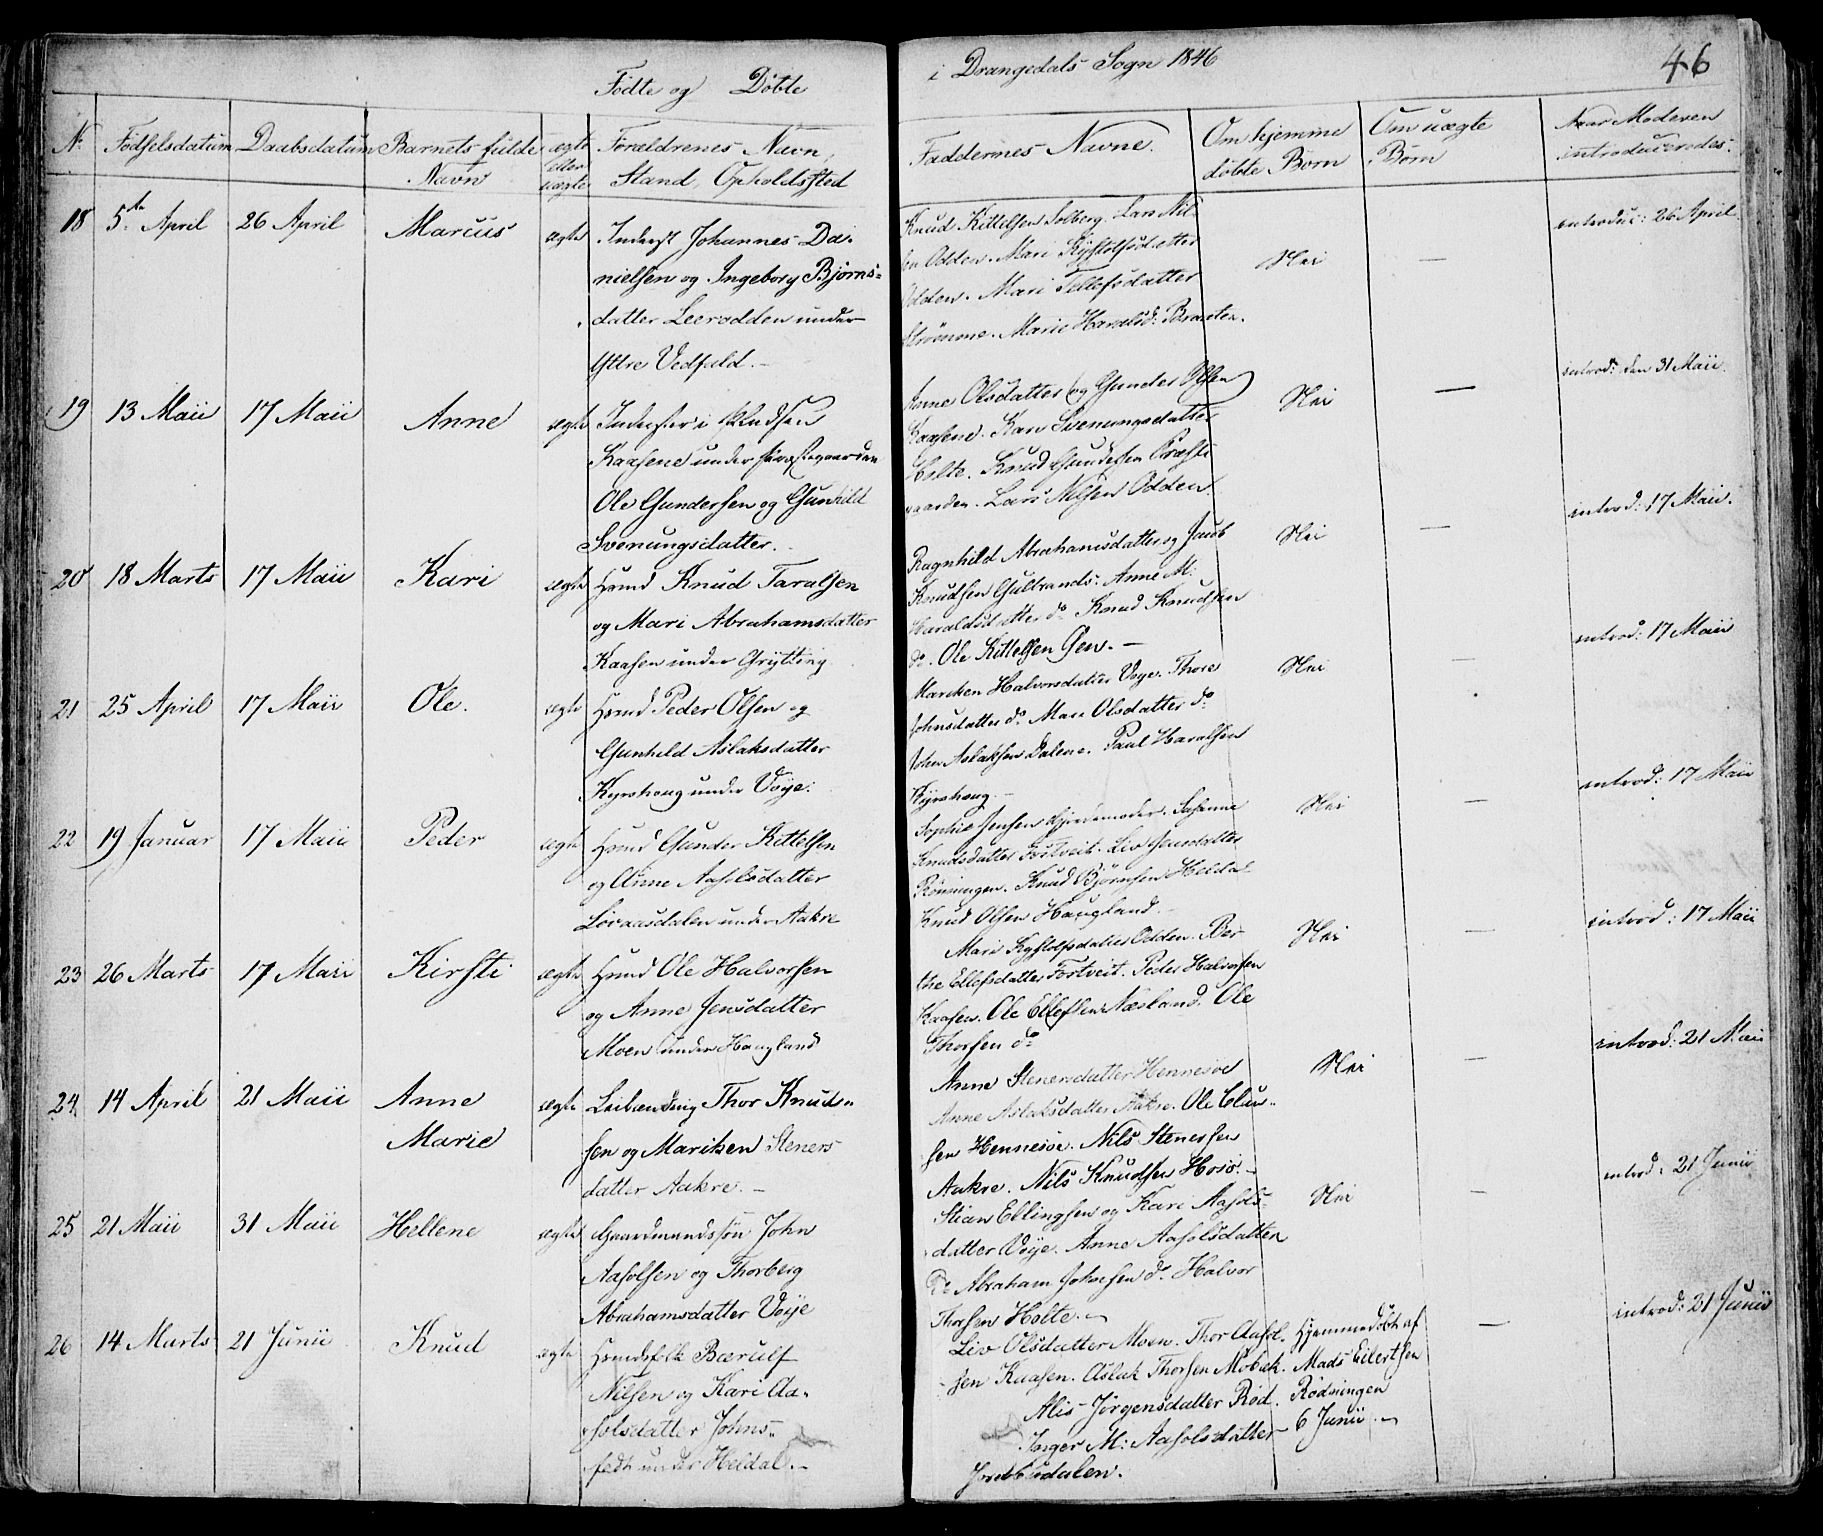 Födte og Döbte
i Drangedals Sogn 1846
46
No
Födselsdatum
Daabsdatum
Barnets fulde
Navn
ægte
eller
uægte
Forældrenes Navn,
Stand, Opholdssted
Faddernes Navne.
Om hjemme
döbte Börn
Om uægte
Börn
Naar Moderen
introduceredes.
18
5te April
26 April
Marcus
ægte
Inderst Johannes Da-
nielsen og Ingeborg Björns-
datter Leerodden under
Yttre Vedfald.
Knud Kittelsen Solberg. Lars Nil-
sen Odden. Mari Kystolfsdatter
Odden. Mari Tellefsdatter
Strömme. Marie Haraldsd: Braaten.
Nei
—
introduc: 26 April
19
13 Maii
17 Maii
Anne
ægte
Kaasene under Præstegaarden
Ole Gundersen og Gunhild
Svenungsdatter.
Anne Olsdatter og Gunder Olsen
Kaasene. Kari Svenungsdatter
Holte. Knud Gundersen Præste
gaarden. Lars Nilsen Odden.
Nei
—
introd: den 31 Maii
20
18 Marts
17 Maii
Kari
ægte
Hsmd Knud Taralsen
og Mari Abrahamsdatter
Kaasen under Grytting
Ragnhild Abrahamsdatter og Jacob
Knudsen Gulbrands. Anne M:
Haraldsdatter do Knud Knudsen
do. Ole Kittelsen Öen. —
Nei
—
introd: 17 Maii.
21
25 April
17 Maii
Ole.
ægte
Hsmd Peder Olsen og
Gunhild Aslaksdatter
Kyrshaug under Voje.
Mariken Halvorsdatter Voje. Thore
Johnsdatter do Mari Olsdatter do
John Aslaksen Dalene. Paul Haralsen
Kyrshaug. —
Nei
—
introd: 17 Maii
22
19 Januar
17 Maii
Peder
ægte
Hsmd Gunder Kittelsen
og Anne Aasolsdatter
Lövaasdalen under Aakre
Sophie Jensen Gjordemoder. Susanne
Knudsdatter Tostveit. Liv Jensdatter
Rönningen. Knud Björnsen Heldal
Knud Olsen Haugland.
Nei
—
introd: 17 Maii
23
26 Marts
17 Maii
Kirsti
ægte
Hsmd Ole Halvorsen
og Anne Jensdatter
Moen under Haugland
Mari Kystolfsdatter Odden. Ber-
the Ellefsdatter Tostveit. Peder Halvorsen
Kaasen. Ole Ellefsen Næsland. Ole
Thorsen do
Nei
—
introd: 17 Maii
24
14 April
21 Maii
Anne
Marie
ægte
Leilænding Thor Knud-
sen og Mariken Steners
datter Aakre. —
Anne Stenersdatter Henneseie
Anne Aslaksdatter Aakre. Ole Clau-
sen Henneseie. Nils Stenersen
Aakre. Nils Knudsen Hosö. —
Nei
—
introd: 21 Maii
25
21 Maii
31 Maii
Hellene
ægte
Gaardmandssön John
Aasolsen og Thorberg
Abrahamsdatter Voje
Stian Ellingsen og Kari Aasols-
datter Voje. Anne Aasolsdatter
Do Abraham Johnsen do Halvor
Thorsen Holte.
Nei
—
introd: 21 Junii
26
14 Marts
21 Junii
Knud
ægte
Hsmdsfolk Bærulf
Nilsen og Kari Aa-
solsdatter Johns-
under Heldal. —
Liv Olsdatter Moen. Thor Aasol-
sen Kaasen. Aslak Thorsen Mobæk.
Alis Jörgensdatter Röd.
Inger M: Aasolsdatter
Hjemmedöbt af
Mads Eilertsen
Rödningen
6 Junii. —
—
introd: 21 Junii